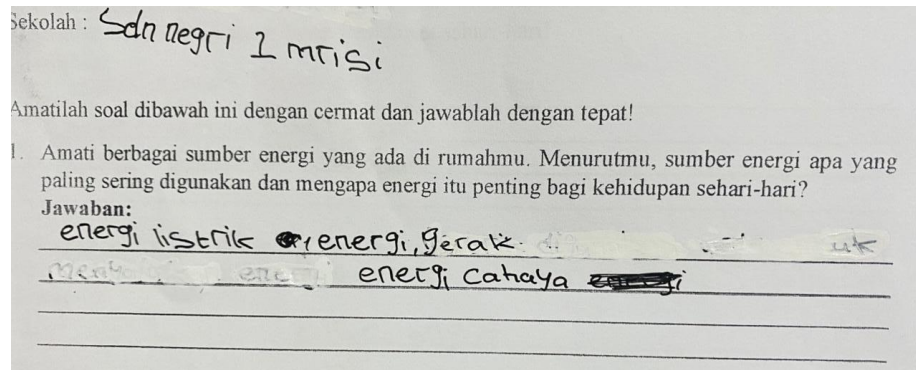 Sekolah : Sdn negri 1 mrisi
Amatilah soal dibawah ini dengan cermat dan jawablah dengan tepat!
1. Amati berbagai sumber energi yang ada di rumahmu. Menurutmu, sumber energi apa yang
paling sering digunakan dan mengapa energi itu penting bagi kehidupan sehari-hari?
Jawaban:
energi listrik energi, gerak.
energi cahaya